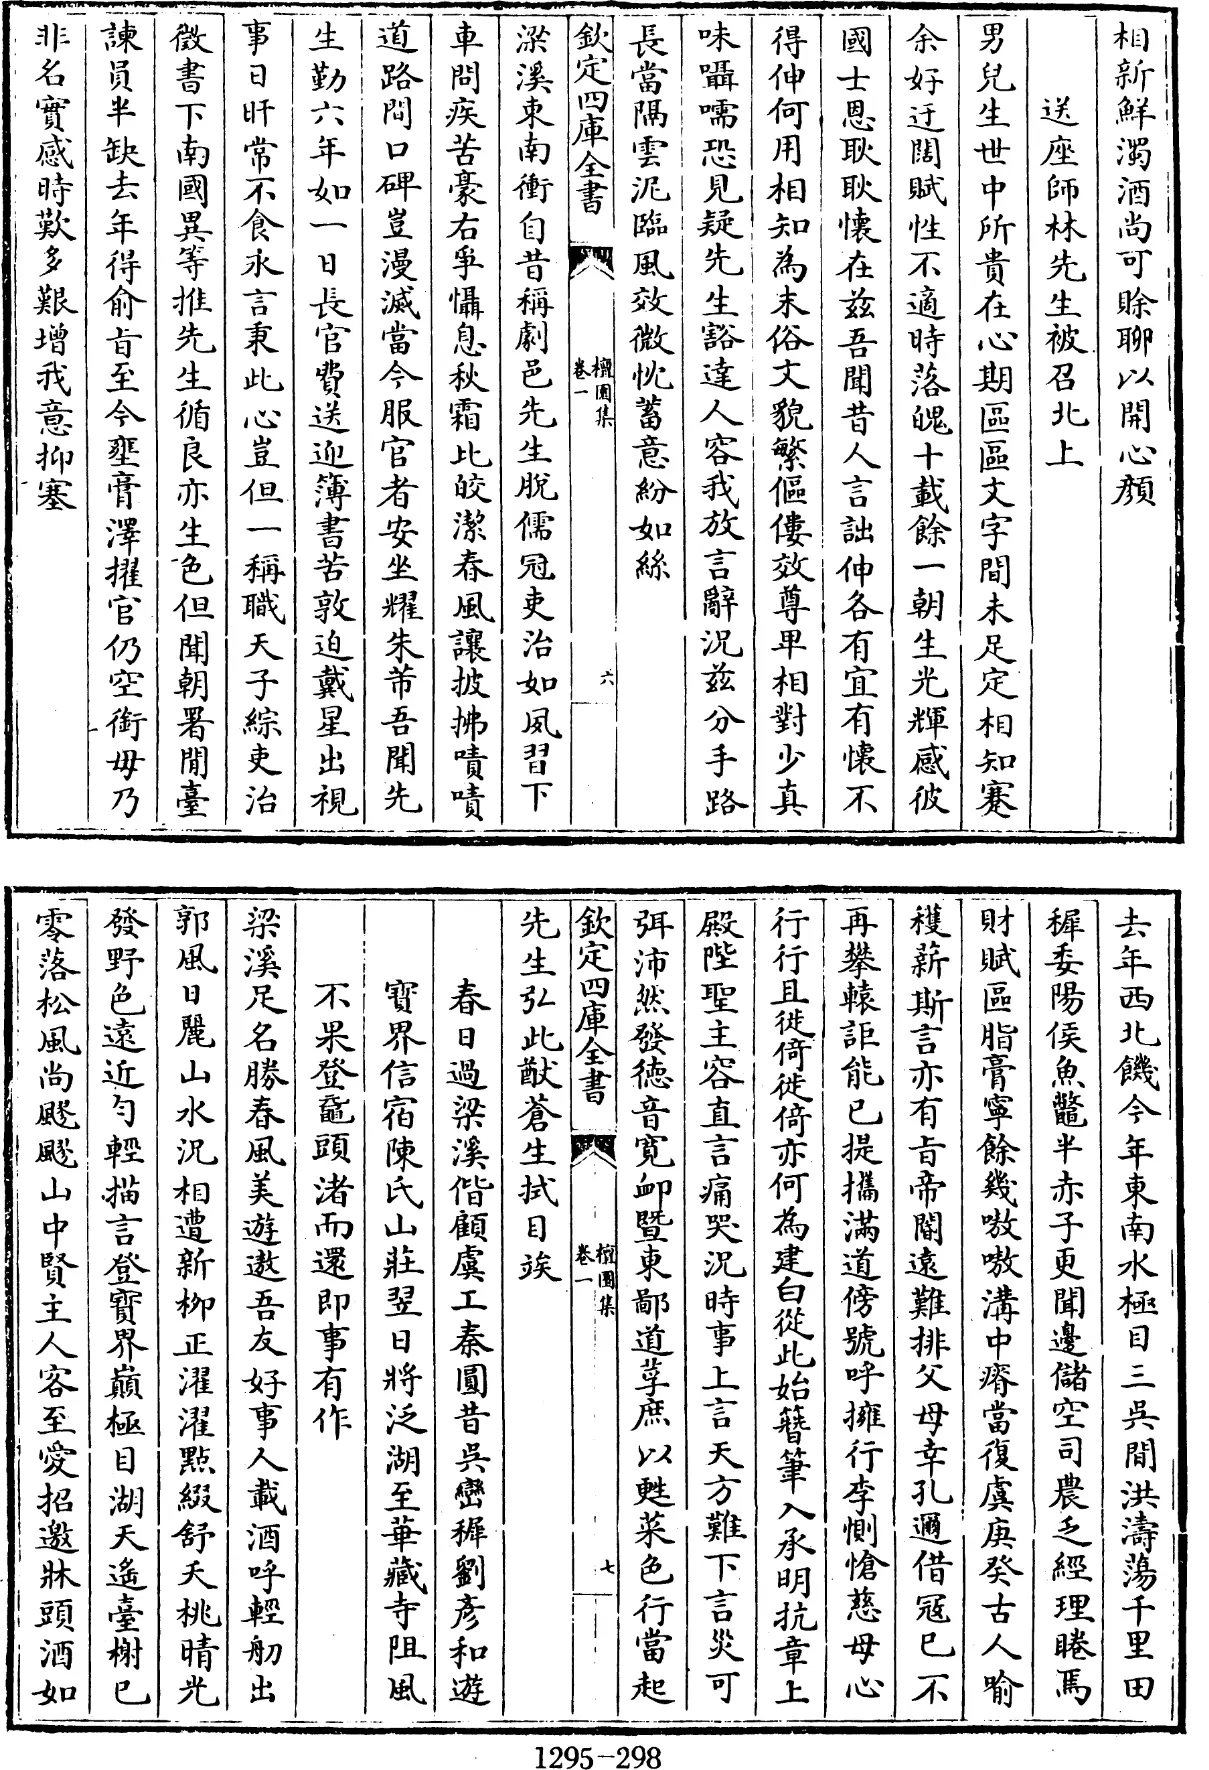 相新鮮濁酒尚可賒聊以開心顏
送座師林先生被召北上
男兒生世中所貴在心期區區文字間未足定相知蹇
余好迂闊賦性不適時落魄十載餘一朝生光輝感彼
國士恩耿耿懷在兹吾聞昔人言詘伸各有宜有懷不
得伸何用相知為末俗文貌繁傴僂效尊卑相對少真
味囁嚅恐見疑先生豁達人容我放言辭況兹分手路
長當隔雲泥臨風效微忱蓄意紛如絲
欽定四庫全書
檀園集
卷一
六
梁溪東南衝自昔稱劇邑先生脫儒冠吏治如夙習下
車問疾苦豪右爭懾息秋霜比皎潔春風讓披拂嘖嘖
道路間口碑豈漫滅當今服官者安坐耀朱芾吾聞先
生勤六年如一日長官費送迎簿書苦敦迫戴星出視
事日旰常不食永言秉此心豈但一稱職天子綜吏治
徵書下南國異等推先生循良亦生色但聞朝署閒臺
諫員半缺去年得俞旨至今壅膏澤擢官仍空銜毋乃
非名實感時歎多艱增我意抑塞
去年西北饑今年東南水極目三吳間洪濤蕩千里田
穉委陽侯魚鼈半赤子更聞邊儲空司農乏經理睠焉
財賦區脂膏寧餘幾嗷嗷溝中瘠當復虞庚癸古人喻
穫薪斯言亦有旨帝閽遠難排父母幸孔邇借冦已不
再攀轅詎能已提攜滿道傍號呼擁行李惻愴慈母心
行行且徙倚徙倚亦何為建白從此始簪筆入承明抗章上
殿陛聖主容直言痛哭況時事上言天方難下言災可
弭沛然發德音寛卹暨東鄙道莩庶以甦菜色行當起
欽定四庫全書
檀園集
卷一
七
先生弘此猷蒼生拭目竢
春日過梁溪偕顧虞工秦圓昔吳巒穉劉彥和遊
寶界信宿陳氏山莊翌日將泛湖至華藏寺阻風
不果登黿頭渚而還即事有作
梁溪足名勝春風美遊遨吾友好事人載酒呼輕舠出
郭風日麗山水況相遭新柳正濯濯點綴舒夭桃晴光
發野色遠近勻輕描言登寶界巔極目湖天遙臺榭已
零落松風尚颼颼山中賢主人客至愛招邀牀頭酒如
1295-298